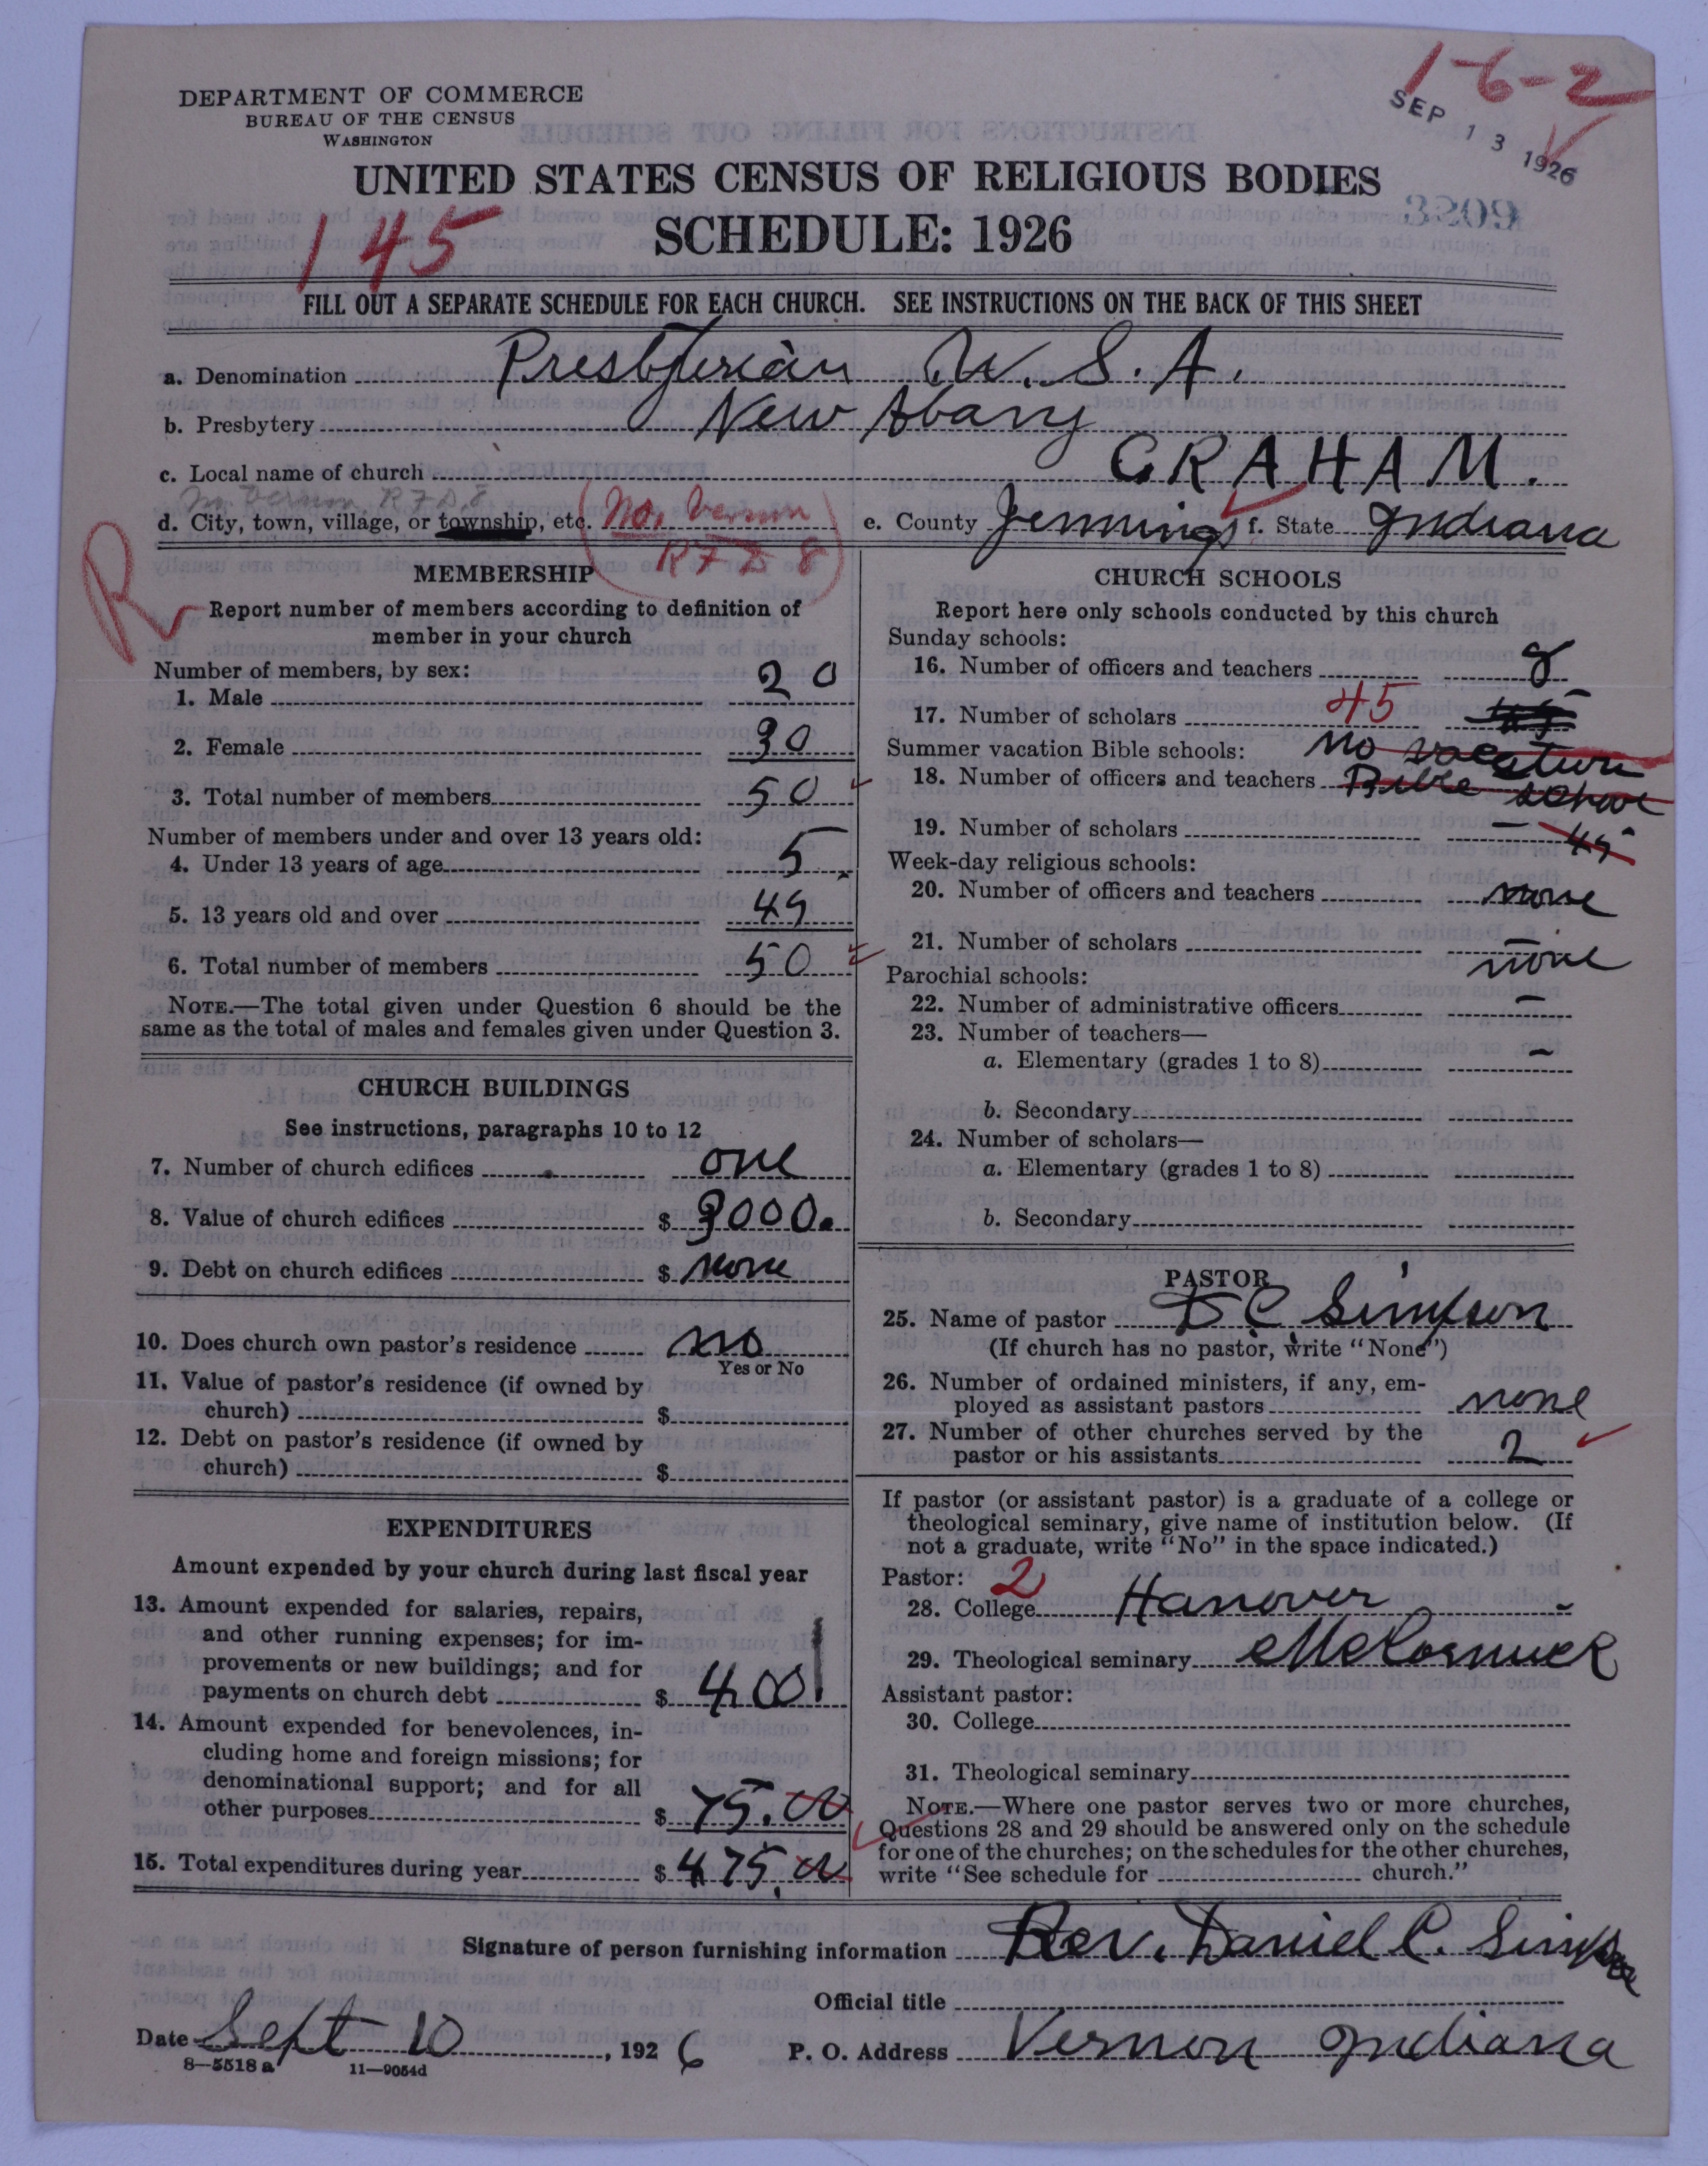 1-6-2
SEP 13 1926
DEPARTMENT OF COMMERCE
BUREAU OF THE CENSUS
WASHINGTON
UNITED STATES CENSUS OF RELIGIOUS BODIES
SCHEDULE: 1926
145
FILL OUT A SEPARATE SCHEDULE FOR EACH CHURCH. SEE INSTRUCTIONS ON THE BACK OF THIS SHEET
a. Denomination Presbyterian U.S.A.
b. Presbytery New Albany
c. Local name of church GRAHAM.
d. City, town, village, or township, etc. No. Vernon e. County Jennings f. State Indiana
RFD 8
R
MEMBERSHIP
Report number of members according to definition of
member in your church
Number of members, by sex:
1. Male 20
2. Female 30
3. Total number of members 50
Number of members under and over 13 years old:
4. Under 13 years of age 5
5. 13 years old and over 45
6. Total number of members 50
NOTE.—The total given under Question 6 should be the
same as the total of males and females given under Question 3.
CHURCH BUILDINGS
See instructions, paragraphs 10 to 12
7. Number of church edifices one
8. Value of church edifices $ 3000.
9. Debt on church edifices $ none
10. Does church own pastor's residence no
Yes or No
11. Value of pastor's residence (if owned by
church) $
12. Debt on pastor's residence (if owned by
church) $
EXPENDITURES
Amount expended by your church during last fiscal year
13. Amount expended for salaries, repairs,
and other running expenses; for im-
provements or new buildings; and for
payments on church debt $ 400
14. Amount expended for benevolences, in-
cluding home and foreign missions; for
denominational support; and for all
other purposes $ 75.00
15. Total expenditures during year $ 475.00
CHURCH SCHOOLS
Report here only schools conducted by this church
Sunday schools:
16. Number of officers and teachers 8
17. Number of scholars 45
Summer vacation Bible schools: no vacation
18. Number of officers and teachers Bible school
19. Number of scholars – 45
Week-day religious schools:
20. Number of officers and teachers none
21. Number of scholars none
Parochial schools:
22. Number of administrative officers –
23. Number of teachers—
a. Elementary (grades 1 to 8) –
b. Secondary
24. Number of scholars—
a. Elementary (grades 1 to 8)
b. Secondary
PASTOR
25. Name of pastor D. C. Simpson
(If church has no pastor, write "None")
26. Number of ordained ministers, if any, em-
ployed as assistant pastors none
27. Number of other churches served by the
pastor or his assistants 2
If pastor (or assistant pastor) is a graduate of a college or
theological seminary, give name of institution below. (If
not a graduate, write "No" in the space indicated.)
Pastor: 2
28. College Hanover
29. Theological seminary McCormick
Assistant pastor:
30. College
31. Theological seminary
NOTE.—Where one pastor serves two or more churches,
Questions 28 and 29 should be answered only on the schedule
for one of the churches; on the schedules for the other churches,
write "See schedule for church."
Signature of person furnishing information Rev. Daniel C. Simpson
Official title
Date Sept 10, 1926 P. O. Address Vernon Indiana
8—5518 a 11—9054d